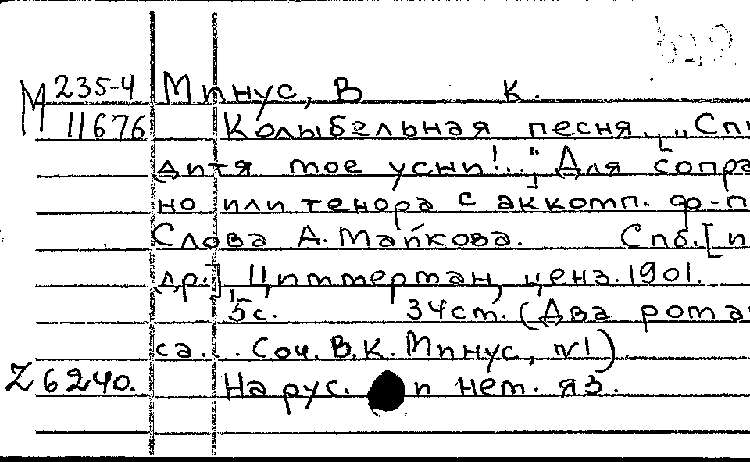 М 235-4 Минус, В К.
11676 Колыбельная песня. „Спи
дитя мое усни!..." Для сопра
но или тенора с аккомп. ф-п
Слова А. Майкова. Спб. [и
др.], Циммерман, ценз. 1901.
5с. 34см. (Два рома
са. . Соч. В.К. Минус, №1)
Z 6240. На рус. и нем. яз.